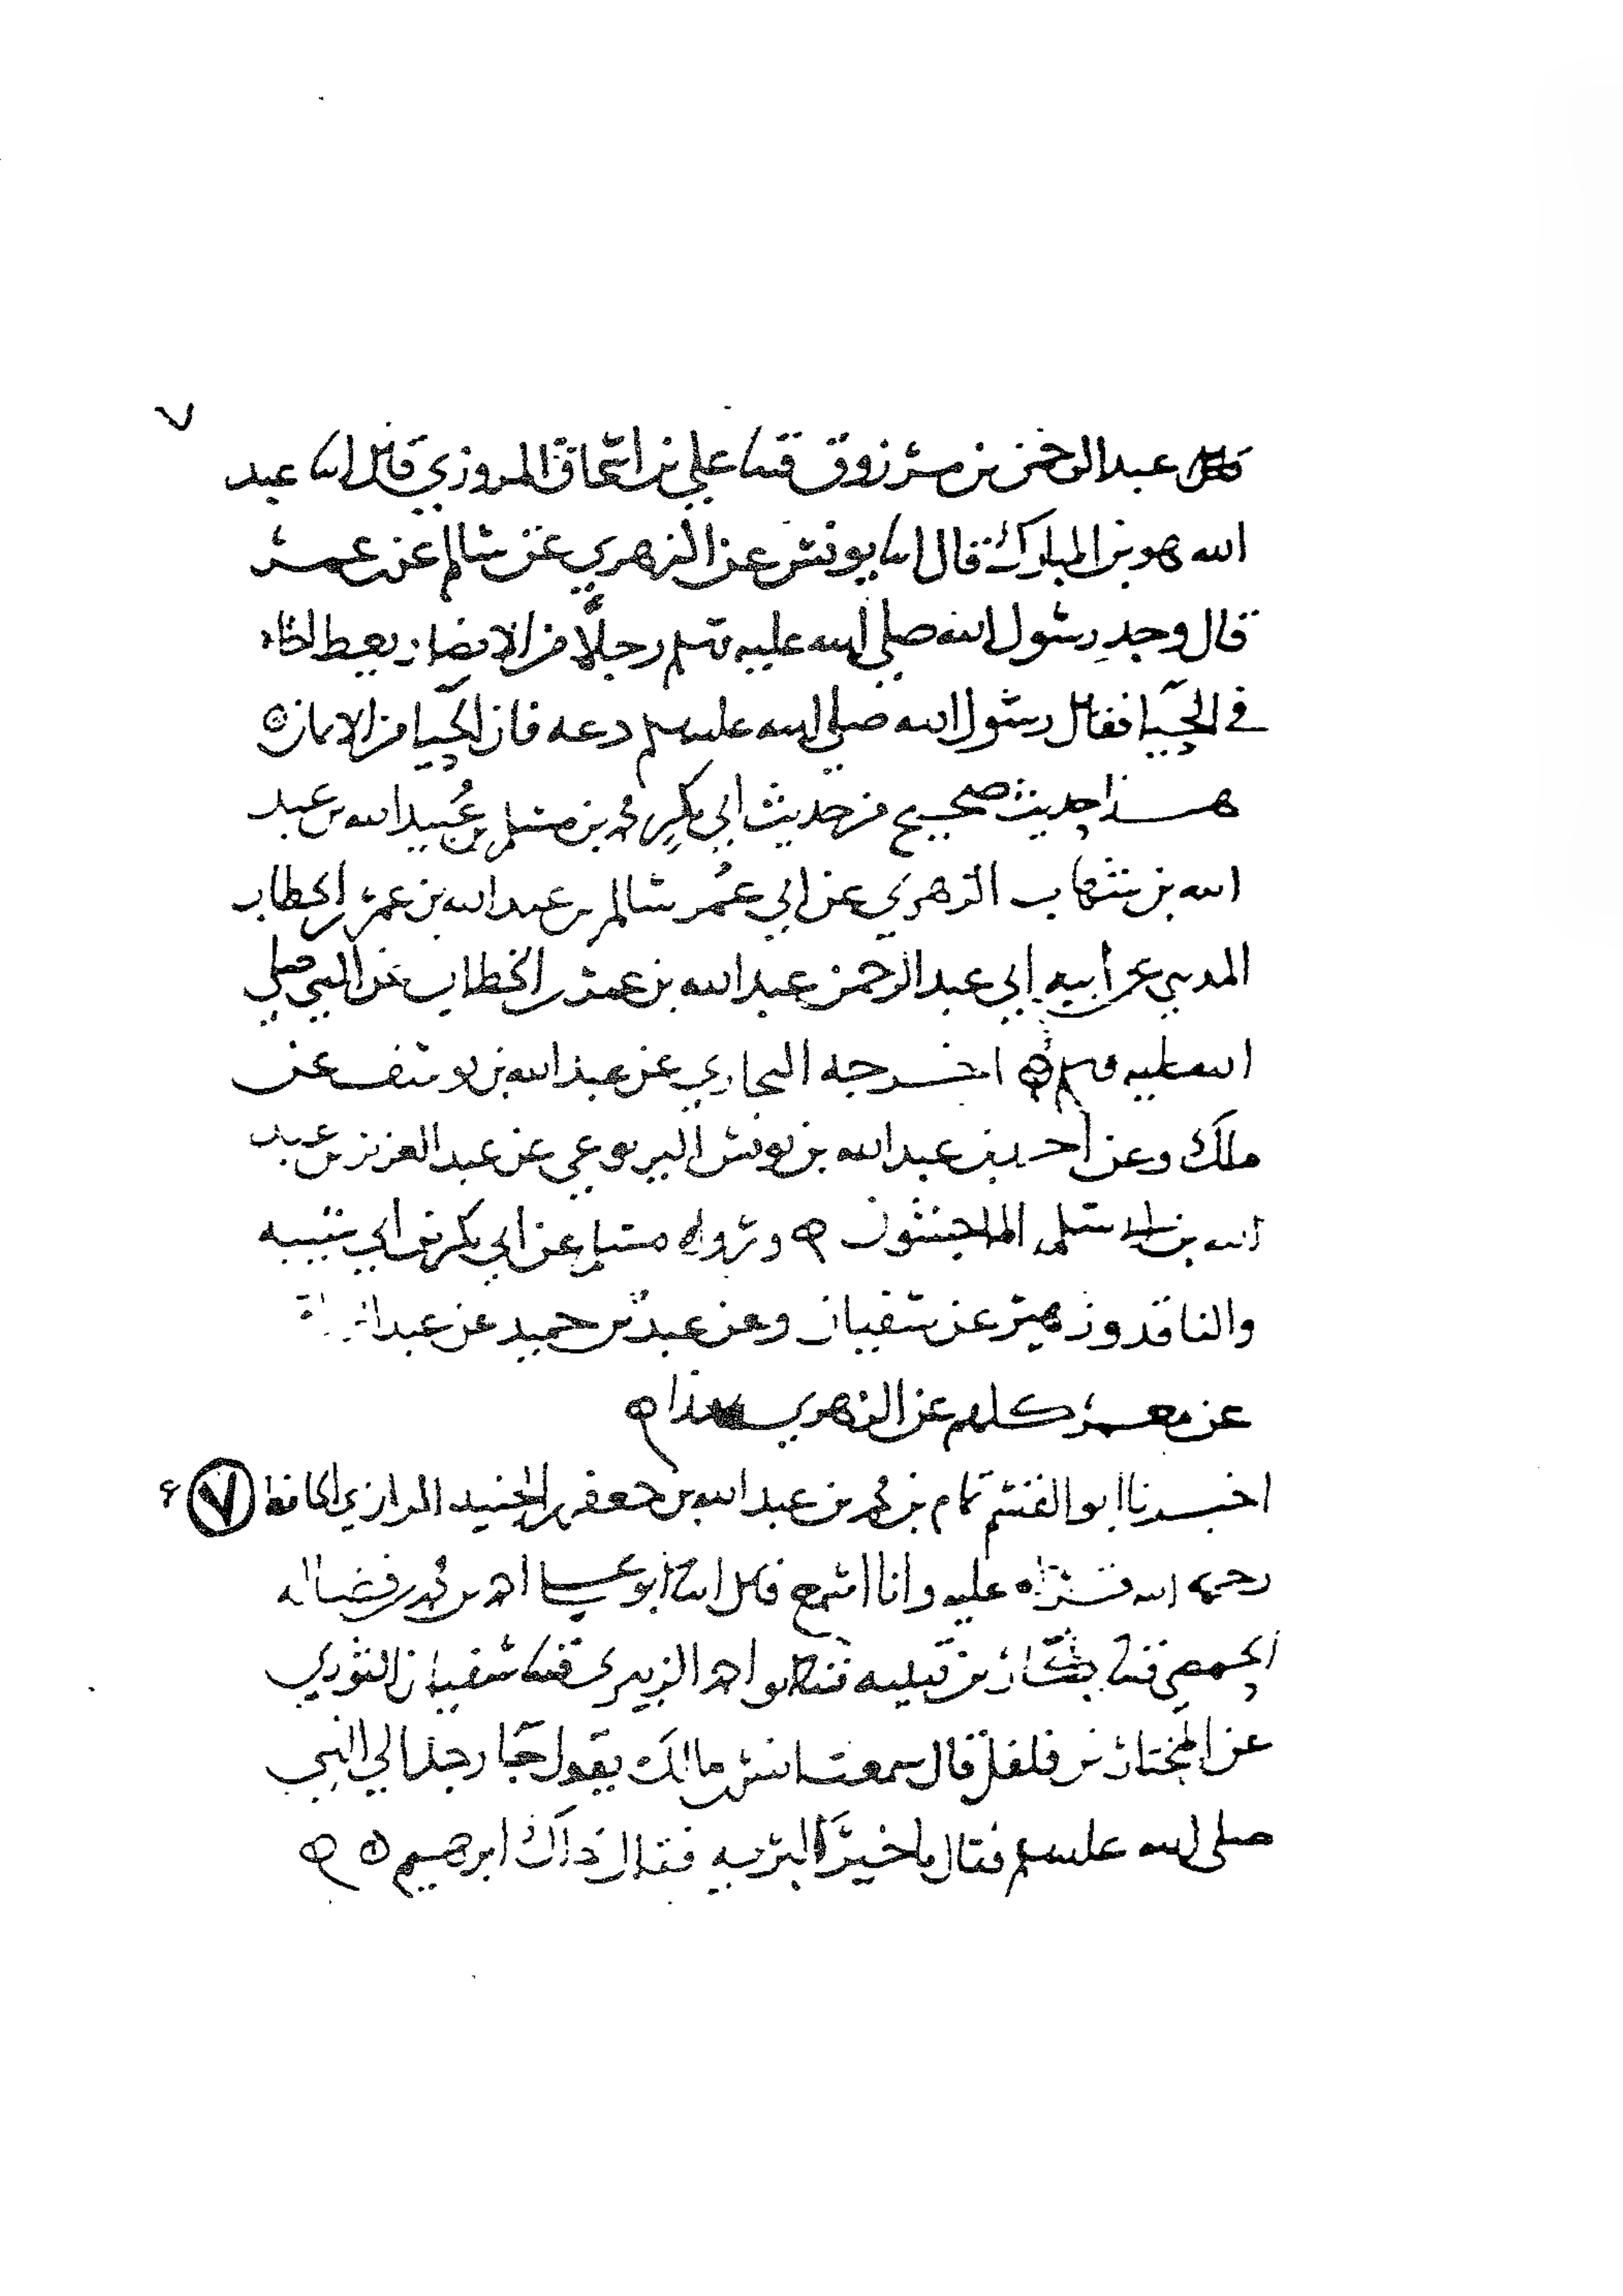 ٧
قال عبد الرحمن بن مرزوق قثنا علي بن اسحاق المروزي قال انا عبد
الله هو بن المبارك قال انا يونس عن الزهري عن سالم عن عمر
قال وجد رسول الله صلى الله عليه وسلم رجلًا من الانصار يعظ اخاه
في الحيا فقال رسول الله صلى الله عليه سلم دعه فان الحيا من الايمان ه
هذا حديث صحيح من حديث ابي بكر محمد بن مسلم بن عُبيد الله بن عبد
الله بن شهاب الزهري عن ابي عُمر سالم بن عبد الله بن عمر بن الخطاب
المديني عن أبيه ابي عبد الرحمن عبد الله بن عمر بن الخطاب عن النبي صلى
الله عليه وسلم ه اخرجه البخاري عن عبد الله بن يوسف عن
ملك وعن احمد بن عبد الله بن يونس اليربوعي عن عبد العزيز بن عبد
الله بن ابي سلمه الماجشون ه ورواه مسلم عن ابي بكر بن ابي شيبه
والناقد وزهير عن سفيان وعن عبد بن حميد عن عبد
عن معمر كلهم عن الزهري بهذا ه
اخبرنا ابو القسم تمام بن محمد بن عبد الله بن جعفر بن الجنيد الرازي الحافظ ٧ ۶
رحمه الله قراه عليه وانا اسمع قال انا ابو عبد الله احمد بن محمد بن فضاله
الحمصي قثنا بكار بن قتيبه قثنا ابو احمد الزبيري قثنا سفيان الثوري
عن المختار بن فلفل قال سمعت انس بن مالك يقول جا رجل الى النبي
صلى الله عليه سلم فقال يا خير البريه فقال ذاك ابرهيم ه ه